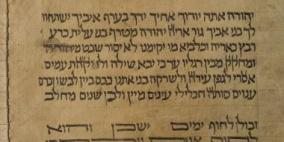 יהודה אתה יודוך אחיך ידך בערף איביך ישתחוו
לך בני אביך גור אריה יהודה מטרף בני עלית כרע
רבץ כאריה וכלביא מי יקימנו לא יסור שבט מיהודה
ומחקק מבין רגליו עד כי יבא שילה ולו יקהת עמים
אסרי לגפן עירה ולשרקה בני אתנו כבס ביין לבשו ובדם
ענבים סותה חכלילי עינים מיין ולבן שנים מחלב
זבולן לחוף ימים ישכן והוא